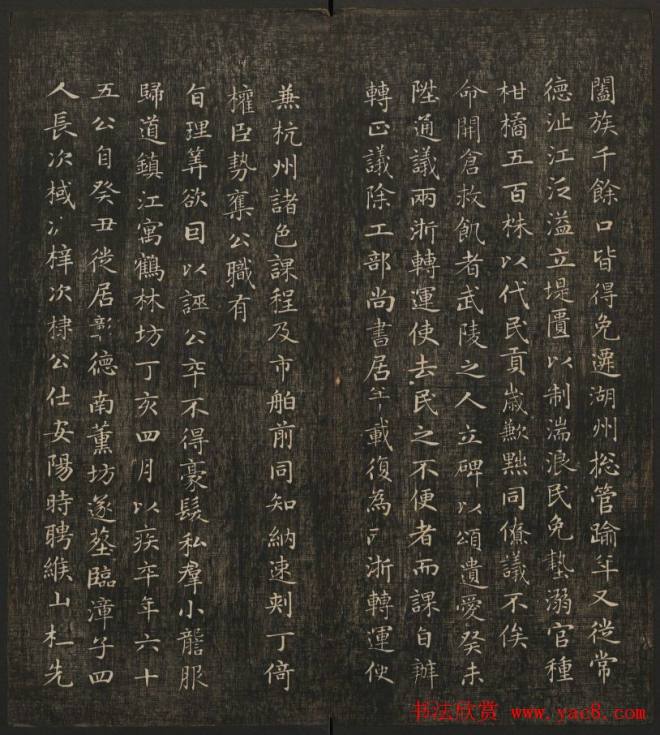 闔族千餘口皆得免遷湖州総管踰年又従常
德沚江泛溢立堤匱以制湍浪民免墊溺官種
柑橘五百株以代民貢歳歉黙同僚議不俟
命開倉救飢者武陵之人立碑以頌遺愛癸未
陞通議兩淅轉運使去民之不便者而課自辦
轉正議除工部尚書居半載復為兩淅轉運使
兼杭州諸色課程及市舶前同知納速剌丁倚
權臣勢奪公職有
旨理筭欲因以誣公卒不得豪髮私羣小讋服
歸道鎮江寓鶴林坊丁亥四月以疾卒年六十
五公自癸丑徙居彰德南薫坊遂塟臨漳子四
人長次棫次梓次棣公仕安陽時聘緱山杜先
书法欣赏 www.yac8.com